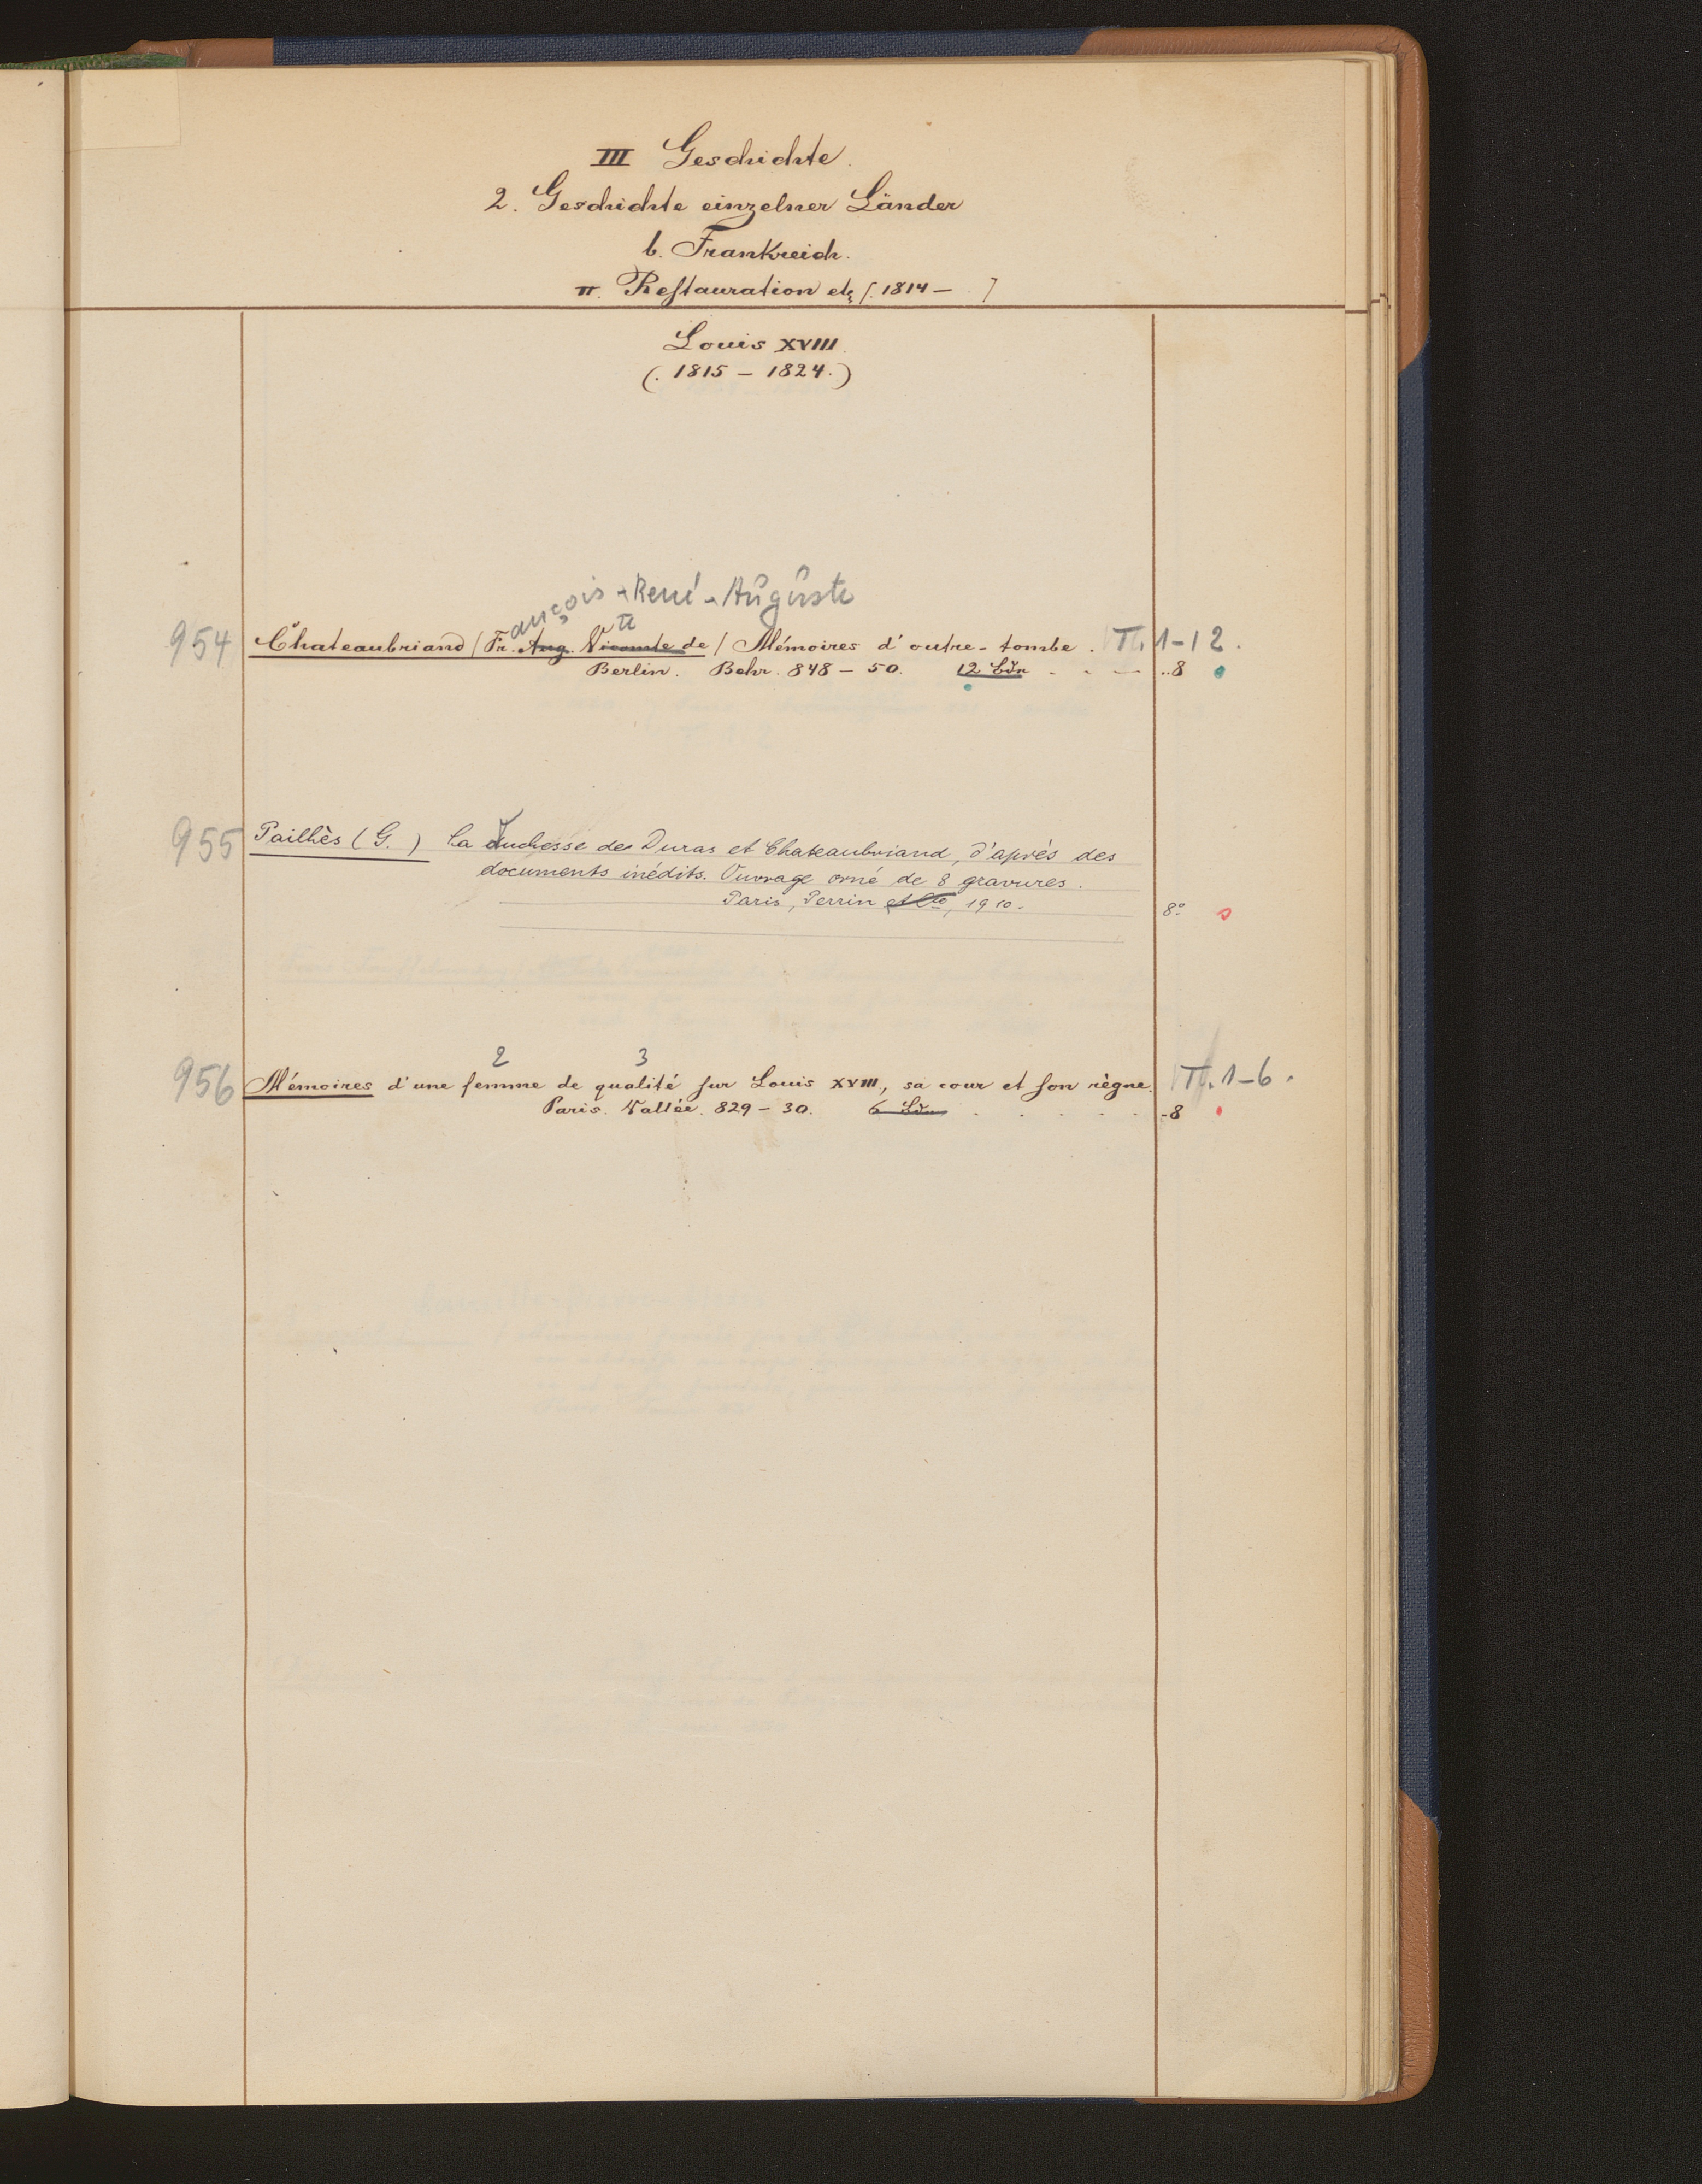 III Geschichte.
2. Geschichte einzelner Länder
b. Frankreich.
π. Restauration etc [. 1814 — ]
Louis XVIII.
(. 1815 — 1824.)
ançois - René - Auguste
954 Chateaubriand / Fr. Aug. Vicomte de / Mémoires d'outre-tombe. T. 1-12.
Berlin. Behr. 848 — 50. 12 Bdn . . — ..8
955 Pailhès (G.) La duchesse de Duras et Chateaubriand, d'après des
documents inédits. Ouvrage orné de 8 gravures.
Paris, Perrin et Cie, 1910. 8°
2 3
956 Mémoires d'une femme de qualité sur Louis XVIII., sa cour et son règne. T. 1-6.
Paris. Vallée. 829 — 30. 6 Bdn . . . . . -8